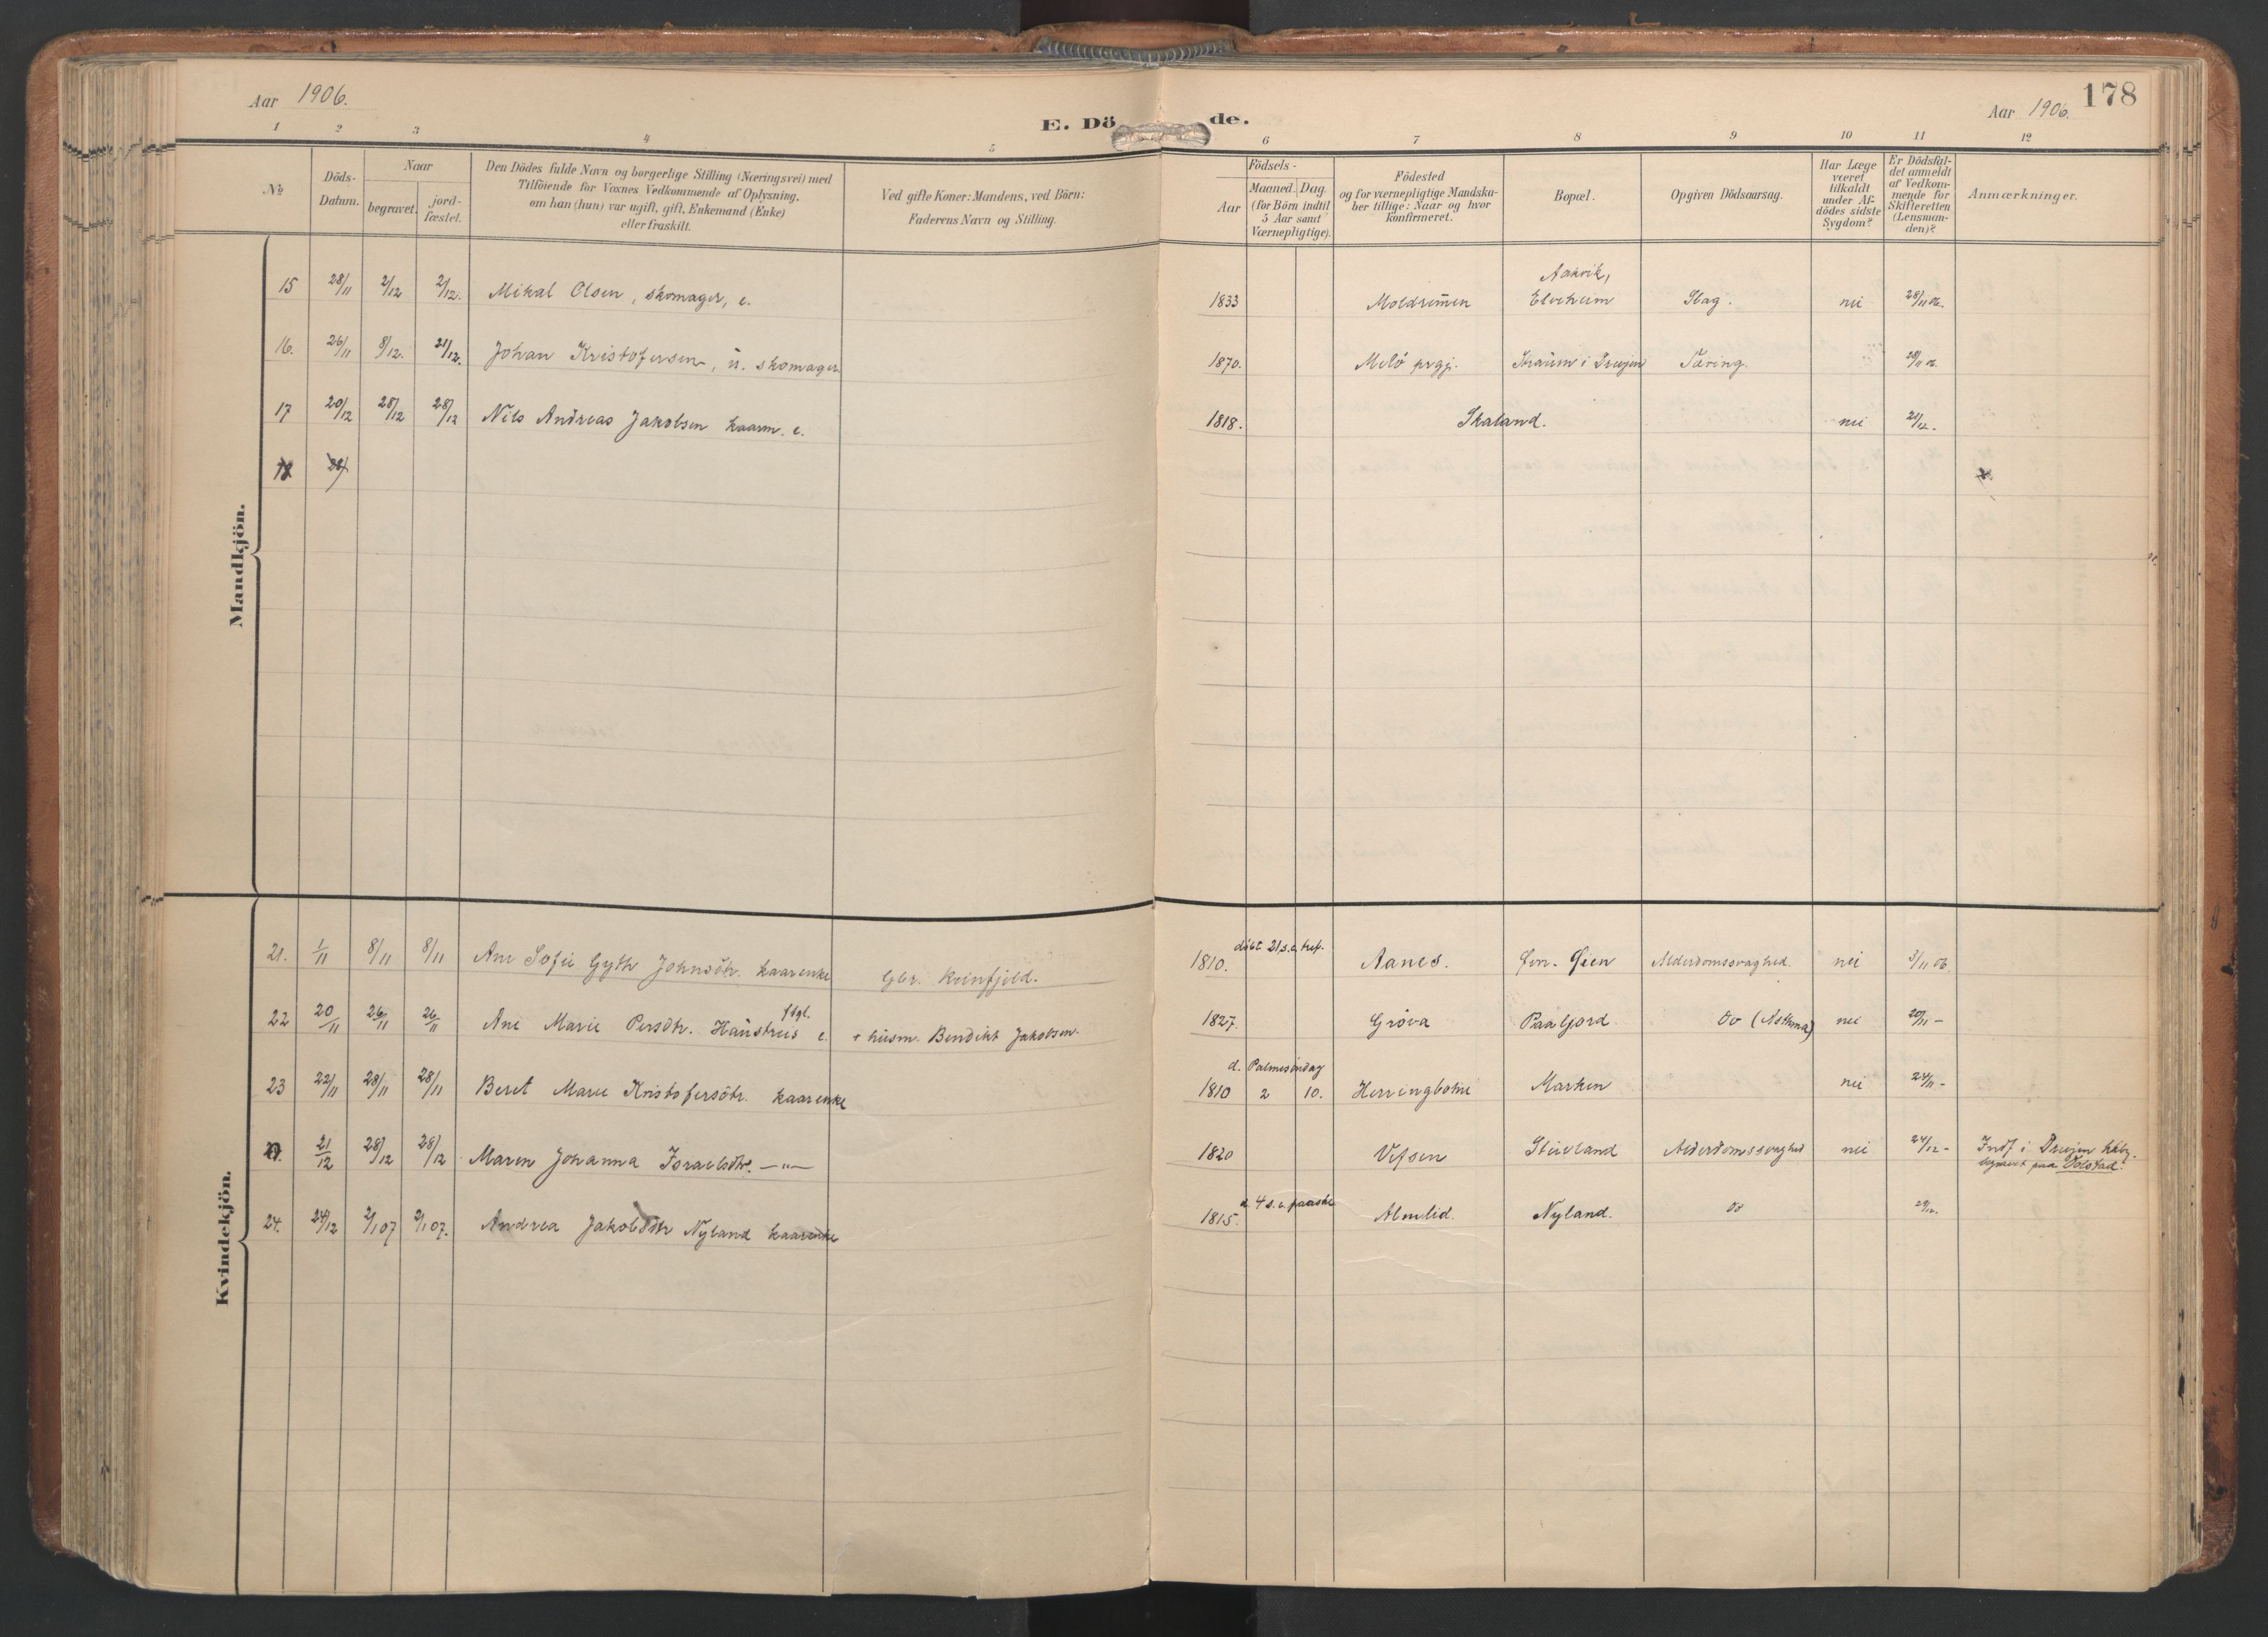 178
Aar 1906.
Aar 1906.
E. Dö de.
1 2 3 4 5 6 7 8 9 10 11 12
№
Döds-
Datum.
Naar
begravet.
jord-
fæstet.
Den Dödes fulde Navn og borgerlige Stilling (Næringsvei) med
Tilföiende for Voxnes Vedkommende af Oplysning,
om han (hun) var ugift, gift, Enkemand (Enke)
eller fraskilt.
Ved gifte Koner: Mandens, ved Börn:
Faderens Navn og Stilling.
Födsels-
Aar
Maaned. Dag.
(for Börn indtil
5 Aar samt
Værnepligtige).
Födested
og for værnepligtige Mandska-
ber tillige: Naar og hvor
konfirmeret.
Bopæl.
Opgiven Dödsaarsag.
Har Læge
været
tilkaldt
under Af-
dödes sidste
Sygdom?
Er Dödsfal-
det anmeldt
af Vedkom-
mende for
Skifteretten
(Lensman-
den)?
Anmærkninger.
Mandkjön.
Aakvik,
15 28/11 2/12 2/12. Mikal Olsen, skomager, e. 1833 Moldremen Elveheim Slag. nei 28/11 06.
16. 26/11 8/12. 21/12. Johan Kristofersen, u. skomager 1870. Melö prgj. Straum i Drevjen Tæring. 28/11 06.
17 20/12 28/12 28/12 Nils Andreas Jakobsen kaarm. e. 1818. Skaland. nei 21/12.
18 28/
Kvindekjön.
döbt 21 s. e. tref.
21. 1/11 8/11 8/11 Ane Sofie Gyth Johnsdtr. kaarenke Gbr. Reinfjeld. 1810. Aanes. Övr. Öien Alderdomssvaghed. nei 3/11 06.
fdgl.
22 20/11 26/11 26/11 Ane Marie Persdtr. Haustreis e. + husm. Bendikt Jakobsen. 1827. Gröva Paalgjord do (Asthma) nei 20/11 -
d. Palmesöndag
23 22/11 28/11 28/11 Beret Marie Kristofersdtr. kaarenke 1810 2 10. Herringbotne Marken nei 24/11 -
21/12 28/12 28/12 Maren Johanna Israelsdtr. —"— 1820 Vefsen Stuvland Alderdomssvaghed nei 24/12 - Indf. i Drevjen kbbg.
begravet paa Dolstad.
d. 4 s. e. paaske
24. 24/12 2/1 07 2/1 07. Andrea Jakobsdtr Nyland kaarenke 1815. Almlid. Nyland. do 29/12.